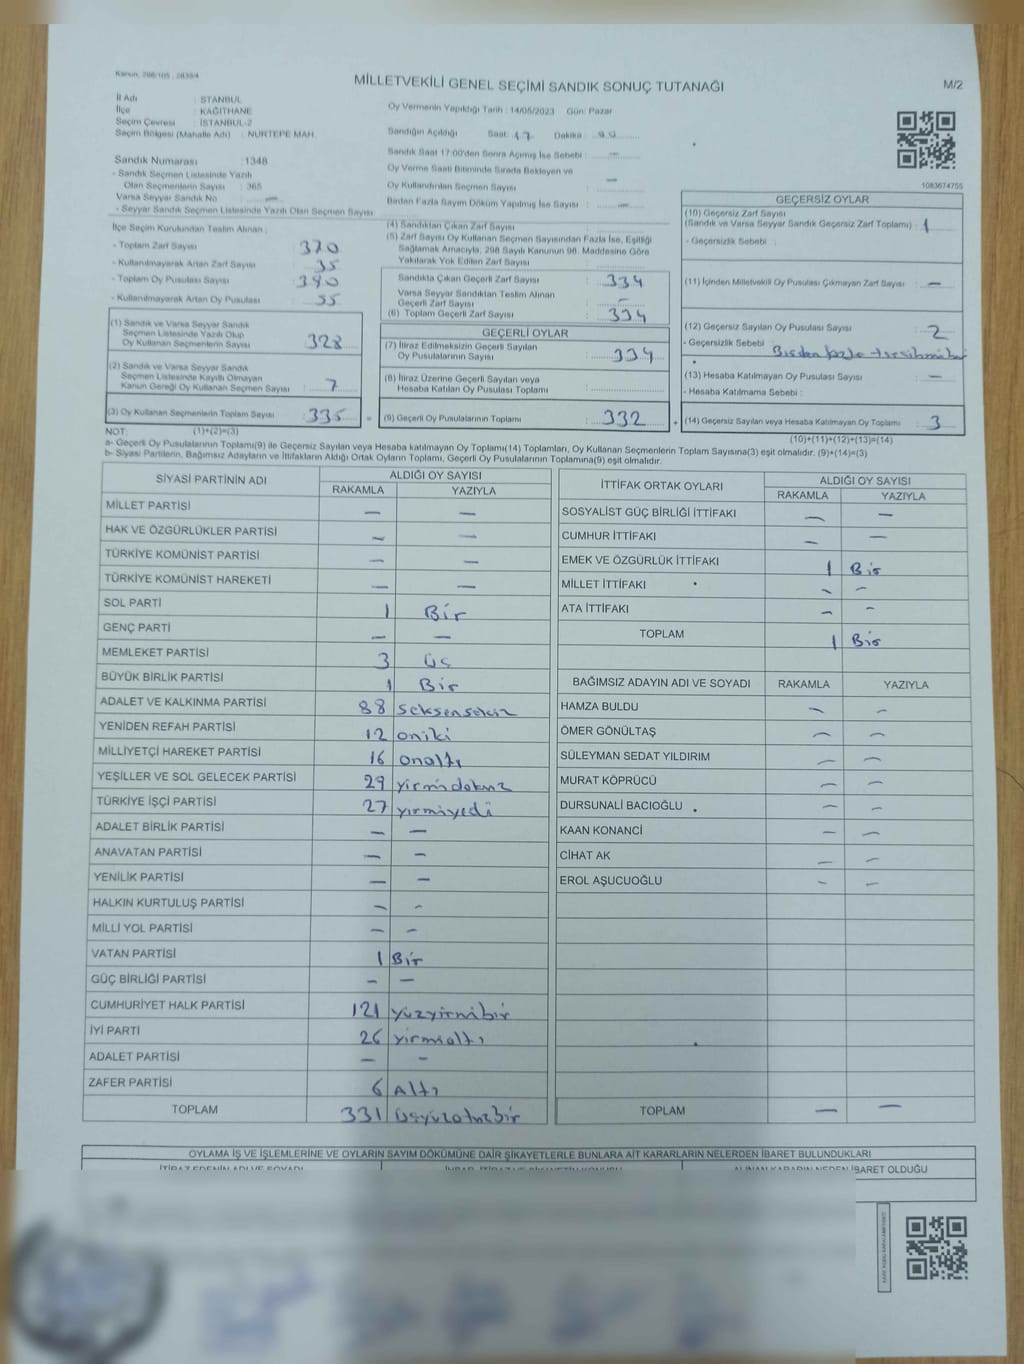 Kanun: 298/105 , 2839/4
MİLLETVEKİLİ GENEL SEÇİMİ SANDIK SONUÇ TUTANAĞI
M/2
İl Adı : İSTANBUL
İlçe : KAĞITHANE
Seçim Çevresi : İSTANBUL-2
Seçim Bölgesi (Mahalle Adı) : NURTEPE MAH.
Oy Vermenin Yapıldığı Tarih : 14/05/2023 Gün: Pazar
Sandığın Açıldığı Saat: 17 Dakika :
Sandık Saat 17:00'den Sonra Açılmış İse Sebebi : —
Oy Verme Saati Bitiminde Sırada Bekleyen ve
Oy Kullandırılan Seçmen Sayısı : —
Birden Fazla Sayım Döküm Yapılmış İse Sayısı : —
Sandık Numarası : 1348
- Sandık Seçmen Listesinde Yazılı
Olan Seçmenlerin Sayısı : 365
Varsa Seyyar Sandık No : —
- Seyyar Sandık Seçmen Listesinde Yazılı Olan Seçmen Sayısı :
İlçe Seçim Kurulundan Teslim Alınan ;
- Toplam Zarf Sayısı : 370
- Kullanılmayarak Artan Zarf Sayısı : 35
- Toplam Oy Pusulası Sayısı : 390
- Kullanılmayarak Artan Oy Pusulası : 55
(1) Sandık ve Varsa Seyyar Sandık
Seçmen Listesinde Yazılı Olup
Oy Kullanan Seçmenlerin Sayısı : 328
(2) Sandık ve Varsa Seyyar Sandık
Seçmen Listesinde Kayıtlı Olmayan
Kanun Gereği Oy Kullanan Seçmen Sayısı : 7
(3) Oy Kullanan Seçmenlerin Toplam Sayısı : 335 =
(4) Sandıktan Çıkan Zarf Sayısı
(5) Zarf Sayısı Oy Kullanan Seçmen Sayısından Fazla İse, Eşitliği
Sağlamak Amacıyla, 298 Sayılı Kanunun 98. Maddesine Göre
Yakılarak Yok Edilen Zarf Sayısı
Sandıkta Çıkan Geçerli Zarf Sayısı : 334
Varsa Seyyar Sandıktan Teslim Alınan
Geçerli Zarf Sayısı : —
(6) Toplam Geçerli Zarf Sayısı : 334
GEÇERLİ OYLAR
(7) İtiraz Edilmeksizin Geçerli Sayılan
Oy Pusulalarının Sayısı : 334
(8) İtiraz Üzerine Geçerli Sayılan veya
Hesaba Katılan Oy Pusulası Toplamı :
(9) Geçerli Oy Pusulalarının Toplamı : 332 +
1083674755
GEÇERSİZ OYLAR
(10) Geçersiz Zarf Sayısı
(Sandık ve Varsa Seyyar Sandık Geçersiz Zarf Toplamı) : 1
- Geçersizlik Sebebi :
(11) İçinden Milletvekili Oy Pusulası Çıkmayan Zarf Sayısı : —
(12) Geçersiz Sayılan Oy Pusulası Sayısı : 2
- Geçersizlik Sebebi : Birden fazla
(13) Hesaba Katılmayan Oy Pusulası Sayısı : —
- Hesaba Katılmama Sebebi :
(14) Geçersiz Sayılan veya Hesaba Katılmayan Oy Toplamı : 3
NOT: (1)+(2)=(3)
(10)+(11)+(12)+(13)=(14)
a- Geçerli Oy Pusulalarının Toplamı(9) ile Geçersiz Sayılan veya Hesaba katılmayan Oy Toplamı(14) Toplamları, Oy Kullanan Seçmenlerin Toplam Sayısına(3) eşit olmalıdır. (9)+(14)=(3)
b- Siyasi Partilerin, Bağımsız Adayların ve İttifakların Aldığı Ortak Oyların Toplamı, Geçerli Oy Pusulalarının Toplamına(9) eşit olmalıdır.
SİYASİ PARTİNİN ADI ALDIĞI OY SAYISI
RAKAMLA YAZIYLA
MİLLET PARTİSİ — —
HAK VE ÖZGÜRLÜKLER PARTİSİ — —
TÜRKİYE KOMÜNİST PARTİSİ — —
TÜRKİYE KOMÜNİST HAREKETİ — —
SOL PARTİ 1 Bir
GENÇ PARTİ — —
MEMLEKET PARTİSİ 3 üç
BÜYÜK BİRLİK PARTİSİ 1 Bir
ADALET VE KALKINMA PARTİSİ 88 seksensekiz
YENİDEN REFAH PARTİSİ 12 oniki
MİLLİYETÇİ HAREKET PARTİSİ 16 onaltı
YEŞİLLER VE SOL GELECEK PARTİSİ 29 yirmidokuz
TÜRKİYE İŞÇİ PARTİSİ 27 yirmiyedi
ADALET BİRLİK PARTİSİ — —
ANAVATAN PARTİSİ — —
YENİLİK PARTİSİ — —
HALKIN KURTULUŞ PARTİSİ — —
MİLLİ YOL PARTİSİ — —
VATAN PARTİSİ 1 Bir
GÜÇ BİRLİĞİ PARTİSİ — —
CUMHURİYET HALK PARTİSİ 121 yüzyirmibir
İYİ PARTİ 26 yirmialtı
ADALET PARTİSİ — —
ZAFER PARTİSİ 6 Altı
TOPLAM 331 üçyüzotuzbir
İTTİFAK ORTAK OYLARI ALDIĞI OY SAYISI
RAKAMLA YAZIYLA
SOSYALİST GÜÇ BİRLİĞİ İTTİFAKI — —
CUMHUR İTTİFAKI — —
EMEK VE ÖZGÜRLÜK İTTİFAKI 1 Bir
MİLLET İTTİFAKI — —
ATA İTTİFAKI — —
TOPLAM 1 Bir
BAĞIMSIZ ADAYIN ADI VE SOYADI RAKAMLA YAZIYLA
HAMZA BULDU — —
ÖMER GÖNÜLTAŞ — —
SÜLEYMAN SEDAT YILDIRIM — —
MURAT KÖPRÜCÜ — —
DURSUNALİ BACIOĞLU — —
KAAN KONANCİ — —
CİHAT AK — —
EROL AŞUCUOĞLU — —
TOPLAM — —
OYLAMA İŞ VE İŞLEMLERİNE VE OYLARIN SAYIM DÖKÜMÜNE DAİR ŞİKAYETLERLE BUNLARA AİT KARARLARIN NELERDEN İBARET BULUNDUKLARI
İBARET OLDUĞU